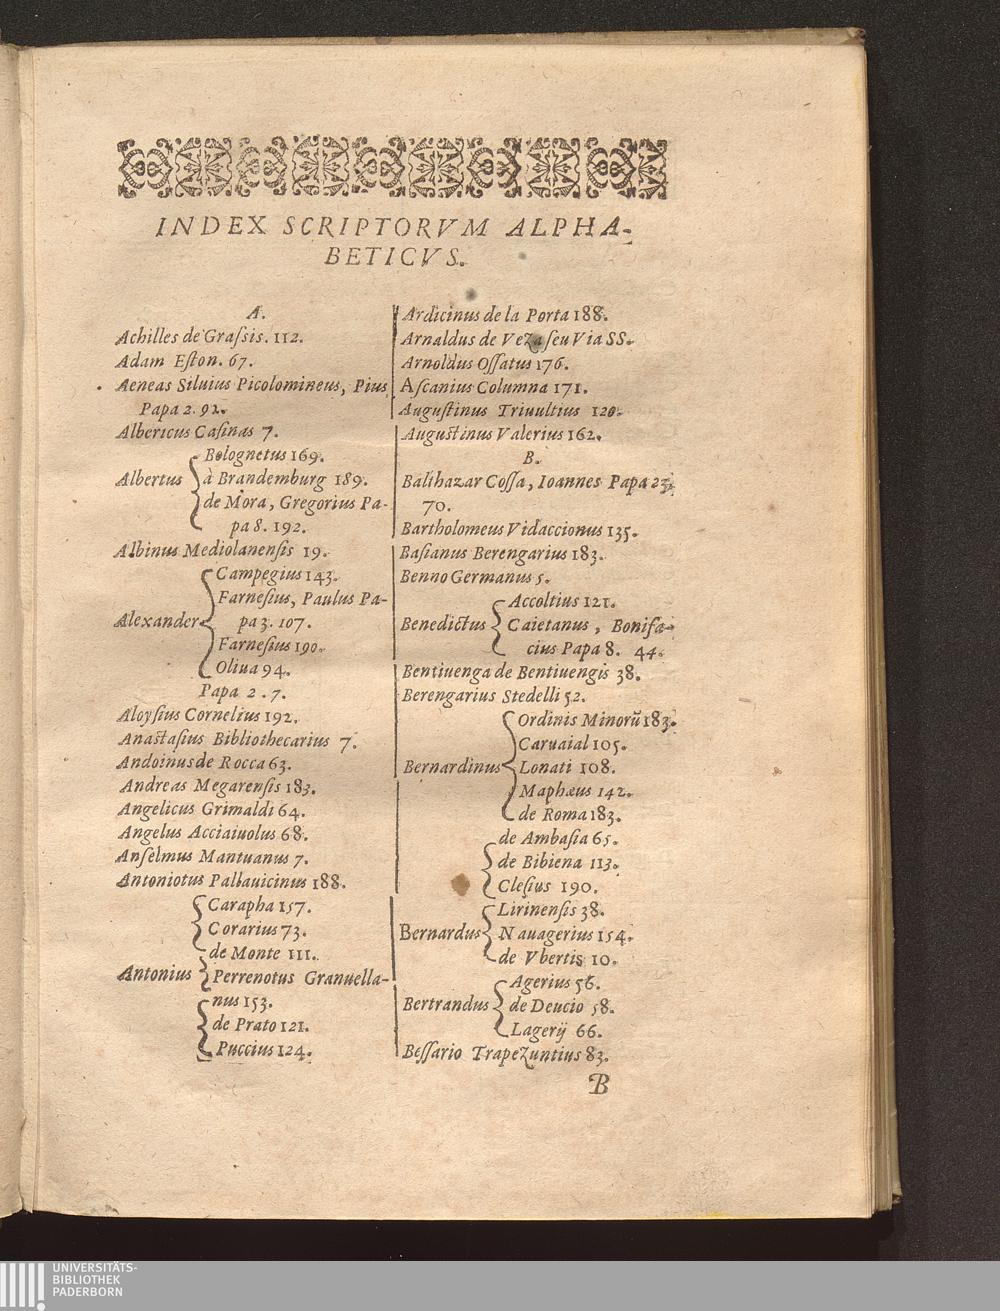 INDEX SCRIPTORVM ALPHA-
BETICVS.
A.
Achilles de Graſsis. 112.
Adam Eſton. 67.
Aeneas Siluius Picolomineus, Pius
Papa 2. 92.
Albericus Caſinas 7.
Bolognetus 169.
Albertus à Brandemburg 189.
de Mora, Gregorius Pa-
pa 8. 192.
Albinus Mediolanenſis 19.
Campegius 143.
Farneſius, Paulus Pa-
Alexander pa 3. 107.
Farneſius 190.
Oliua 94.
Papa 2. 7.
Aloyſius Cornelius 192.
Anaſtaſius Bibliothecarius 7.
Andoinus de Rocca 63.
Andreas Megarenſis 183.
Angelicus Grimaldi 64.
Angelus Acciaiuolus 68.
Anſelmus Mantuanus 7.
Antoniotus Pallauicinus 188.
Carapha 157.
Corarius 73.
de Monte 111.
Antonius Perrenotus Granuella-
nus 153.
de Prato 121.
Puccius 124.
Ardicinus de la Porta 188.
Arnaldus de Veza ſeu Via SS.
Arnoldus Oſſatus 176.
Aſcanius Columna 171.
Auguſtinus Triuultius 120.
Auguſtinus Valerius 162.
B.
Balthazar Coſſa, Ioannes Papa 23.
70.
Bartholomeus Vidaccionus 135.
Baſianus Berengarius 183.
Benno Germanus 5.
Accoltius 121.
Benedictus Caietanus, Bonifa-
cius Papa 8. 44.
Bentiuenga de Bentiuengis 38.
Berengarius Stedelli 52.
Ordinis Minorū 183.
Caruaial 105.
Bernardinus Lonati 108.
Maphæus 142.
de Roma 183.
de Ambaſia 65.
de Bibiena 113.
Cleſius 190.
Lirinenſis 38.
Bernardus Nauagerius 154.
de Vbertis 10.
Agerius 56.
Bertrandus de Deucio 58.
Lagerij 66.
Beſſario Trapezuntius 83.
B
UNIVERSITÄTS-
BIBLIOTHEK
PADERBORN